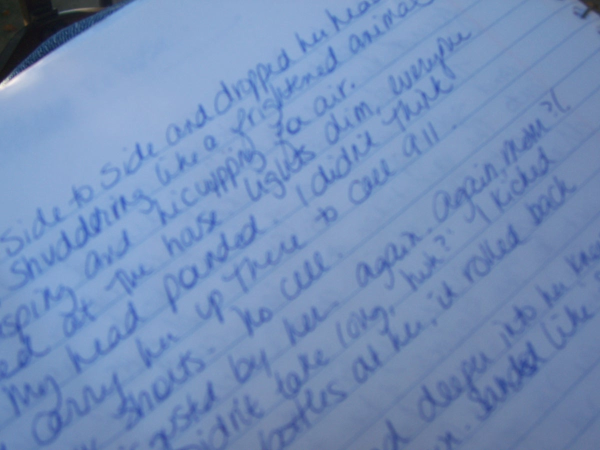 side to side and dropped her head
shuddering like a frightened animal
and hiccupping for air.
at the noise. Lights dim, everyone
My head pounded. I didn't think
carry her up there to call 911.
shorts. No cell.
by her. again. again, mom?!
didn't take long, huh? I kicked
bottles at her, it rolled back
deeper into her
like